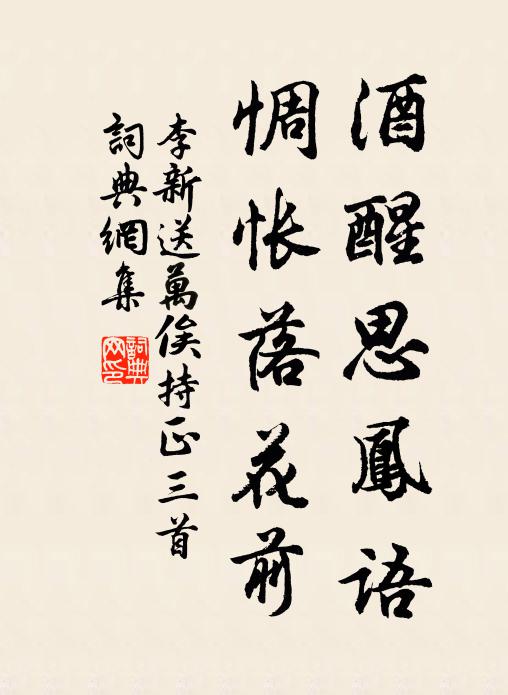 酒醒思鳳語
惆怅落花前
李新送萬俟持正三首
詞典網集
詞典
网印